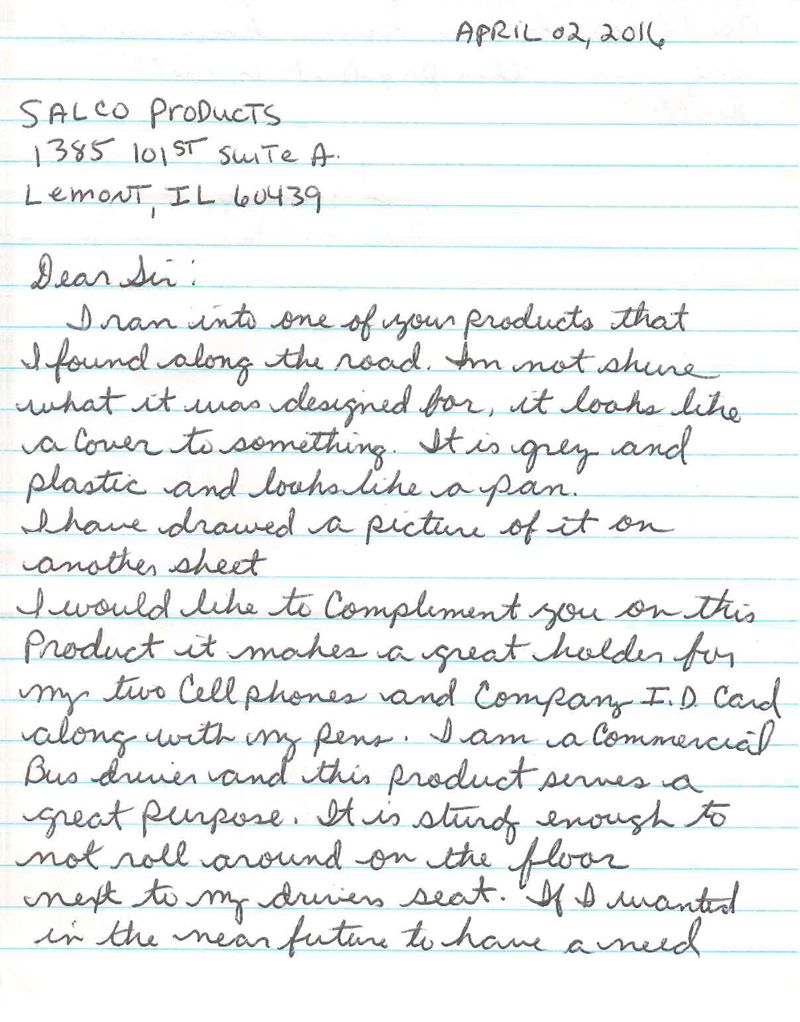 APRIL 02, 2016
SALCO PRODUCTS
1385 101ST SUITE A.
LEMONT, IL 60439
Dear Sir:
I ran into one of your products that
I found along the road. Im not shure
what it was designed for, it looks like
a Cover to something. It is grey and
plastic and looks like a pan.
I have drawed a picture of it on
another sheet
I would like to Compliment you on this
Product it makes a great holder for
my two Cell phones and Company I.D. Card
along with my pens. I am a Commercial
Bus driver and this product serves a
great purpose. It is sturdy enough to
not roll around on the floor
next to my drivers seat. If I wanted
in the near future to have a need